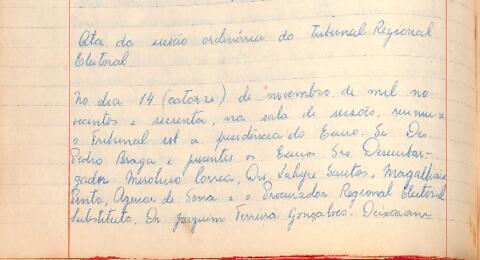 Ata da sessão ordinária do Tribunal Regional
Eleitoral
No dia 14 (catorze) de novembro de mil no
vecentos e sessenta, na sala de sessão, reuniu-se
o Tribunal sob a presidência do Exmo. Sr. Des.
Pedro Braga e presentes os Exmos Srs. Desembar-
gador Merolino Correa, Drs. Lahyre Santos, Magalhães
Pinto, de Sena e o Procurador Regional Eleitoral
substituto, Dr. Joaquim Ferreira Gonçalves. Deixaram